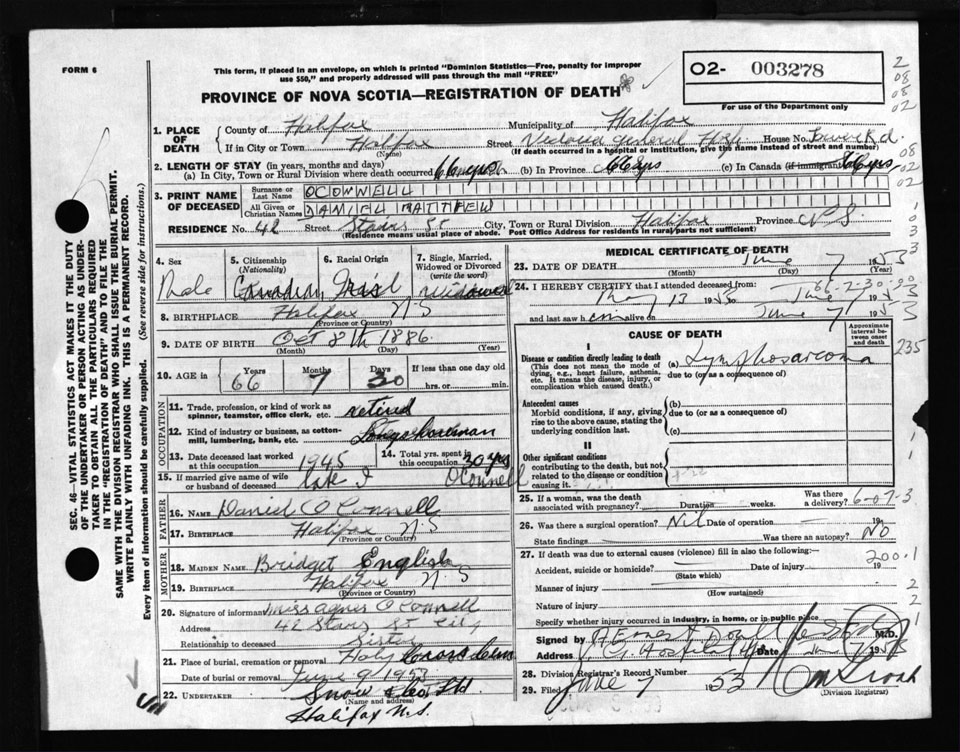 FORM 6
This form, if placed in an envelope, on which is printed "Dominion Statistics—Free, penalty for improper
use $50," and properly addressed will pass through the mail "FREE"
O2- 003278
For use of the Department only
PROVINCE OF NOVA SCOTIA—REGISTRATION OF DEATH
1. PLACE OF DEATH
County of Halifax Municipality of Halifax
If in City or Town Halifax Street Victoria General Hosp. House No.
(Name) (If death occurred in a hospital or institution, give the name instead of street and number)
2. LENGTH OF STAY (in years, months and days)
(a) In City, Town or Rural Division where death occurred 66 yrs (b) In Province 66 yrs (c) In Canada (if immigrant) 66 yrs
3. PRINT NAME OF DECEASED
Surname or Last Name OCONNELL
All Given or Christian Names DANIEL MATTHEW
RESIDENCE No. 42 Street Stairs St City, Town or Rural Division Halifax Province N.S.
(Residence means usual place of abode. Post Office Address for residents in rural parts not sufficient)
4. Sex Male
5. Citizenship (Nationality) Canadian
6. Racial Origin Irish
7. Single, Married, Widowed or Divorced (write the word) widowed
8. BIRTHPLACE Halifax N.S
(Province or Country)
9. DATE OF BIRTH Oct 8th 1886
(Month) (Day) (Year)
10. AGE in Years 66 Months 7 Days 30 If less than one day old
hrs. or min.
OCCUPATION
11. Trade, profession, or kind of work as spinner, teamster, office clerk, etc. retired
12. Kind of industry or business, as cotton-mill, lumbering, bank, etc. Longshoreman
13. Date deceased last worked at this occupation 1945
14. Total yrs. spent in this occupation 30 yrs
15. If married give name of wife or husband of deceased OConnell
FATHER
16. NAME Daniel O Connell
17. BIRTHPLACE Halifax N.S
(Province or Country)
MOTHER
18. MAIDEN NAME Bridget English
19. BIRTHPLACE Halifax N.S
(Province or Country)
20. Signature of informant Miss Agnes O Connell
Address 42 Stairs St City
Relationship to deceased Sister
21. Place of burial, cremation or removal Holy Cross Cem
Date of burial or removal June 9 1953
22. UNDERTAKER Snow & Co. Ltd
(Name and address)
Halifax N.S.
MEDICAL CERTIFICATE OF DEATH
23. DATE OF DEATH June 7 1953
(Month) (Day) (Year)
24. I HEREBY CERTIFY that I attended deceased from:
May 13 1953 June 7 1953
and last saw h im alive on June 7 1953
CAUSE OF DEATH
Approximate interval between onset and death
I
Disease or condition directly leading to death
(This does not mean the mode of dying, e.g., heart failure, asthenia, etc. It means the disease, injury, or complication which caused death.)
(a) Lymphosarcoma
due to (or as a consequence of)
Antecedent causes
Morbid conditions, if any, giving rise to the above cause, stating the underlying condition last.
(b)
due to (or as a consequence of)
(c)
II
Other significant conditions
contributing to the death, but not related to the disease or condition causing it.
25. If a woman, was the death associated with pregnancy? Duration weeks. Was there a delivery?
6-07-3
26. Was there a surgical operation? Nil Date of operation 19
State findings Was there an autopsy? No
27. If death was due to external causes (violence) fill in also the following:—
Accident, suicide or homicide? Date of injury 19
(State which)
200.1
Manner of injury
(How sustained)
Nature of injury
Specify whether injury occurred in industry, in home, or in public place
Signed by M.D.
Address Date
28. Division Registrar's Record Number
29. Filed June 7 1953
(Division Registrar)
235
SEC. 46—VITAL STATISTICS ACT MAKES IT THE DUTY
OF THE UNDERTAKER OR PERSON ACTING AS UNDER-
TAKER TO OBTAIN ALL THE PARTICULARS REQUIRED
IN THE "REGISTRATION OF DEATH" AND TO FILE THE
SAME WITH THE DIVISION REGISTRAR WHO SHALL ISSUE THE BURIAL PERMIT.
WRITE PLAINLY WITH UNFADING INK. THIS IS A PERMANENT RECORD.
Every item of information should be carefully supplied. (See reverse side for instructions.)